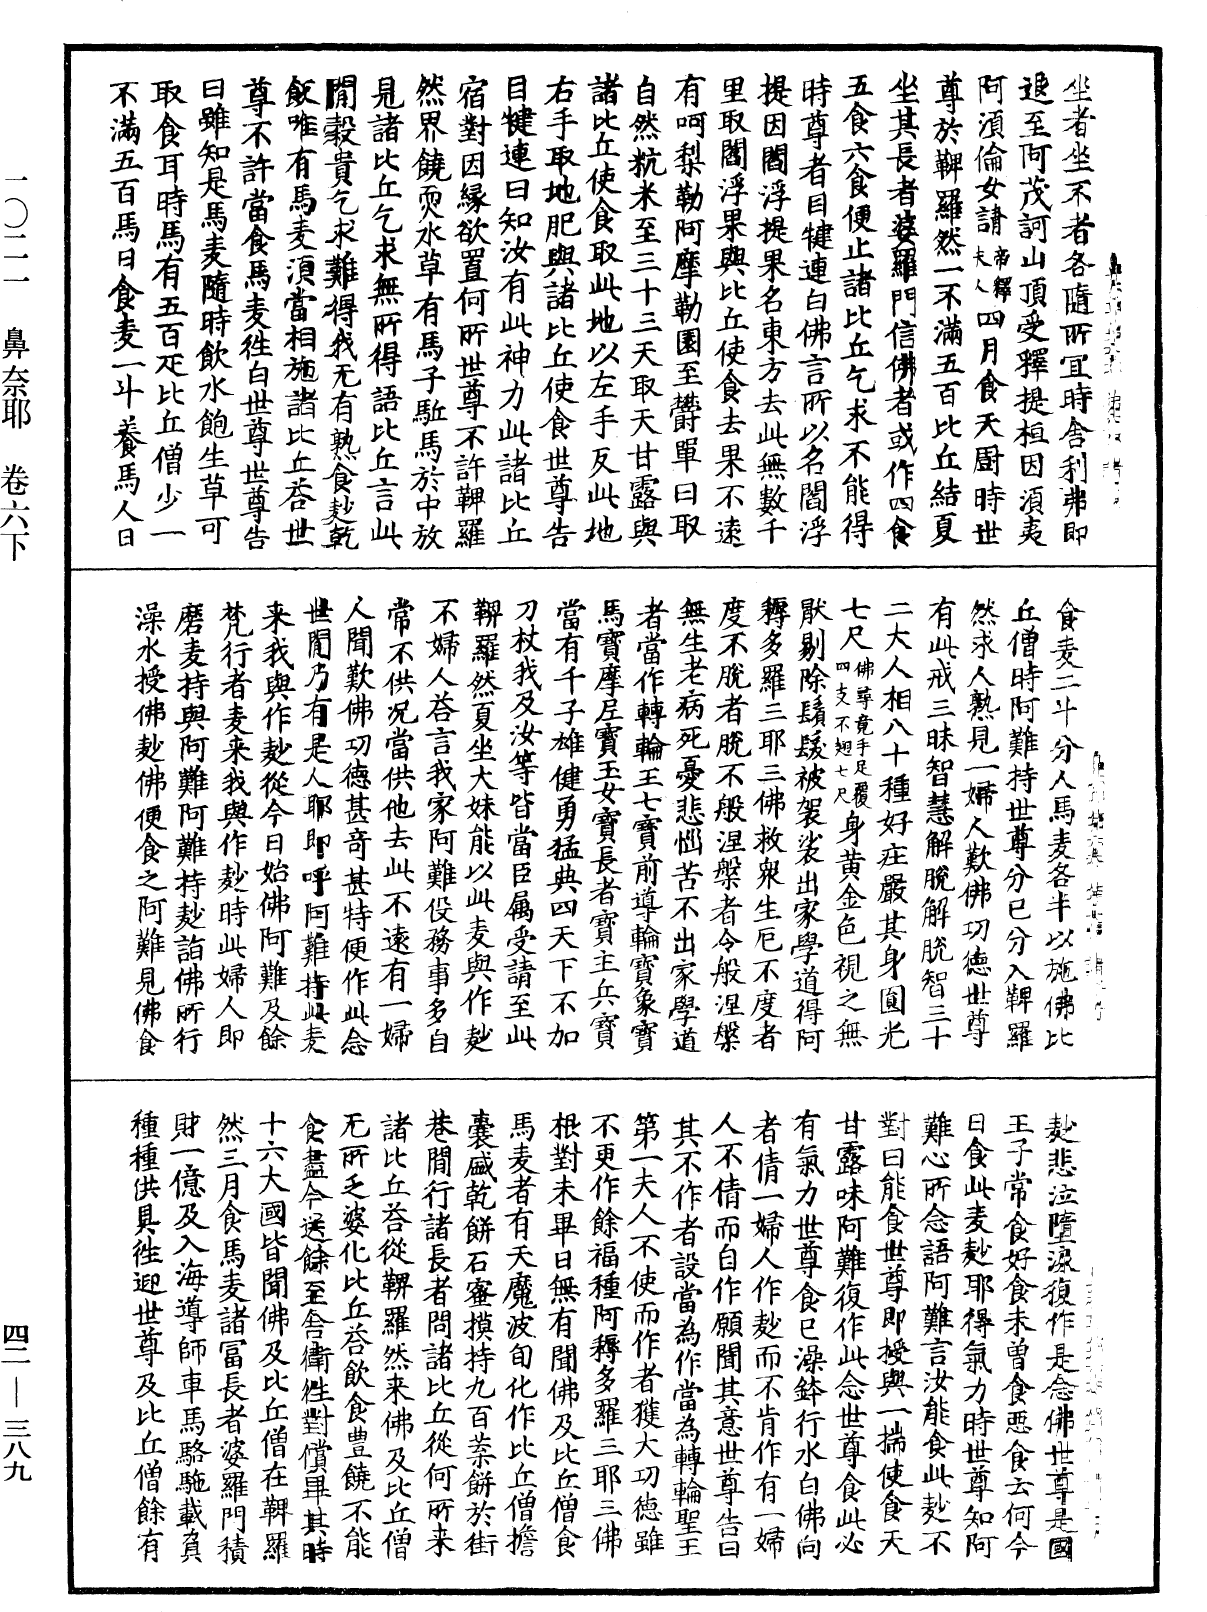 坐者坐不者各隨所宜時舍利弗即
退至阿茂訶山頂受釋提桓因湏夷
阿湏倫女請帝釋夫人四月食天厨時世
尊於鞞羅然一不滿五百比丘結夏
坐其長者婆羅門信佛者或作四食
五食六食便止諸比丘乞求不能得
時尊者目犍連白佛言所以名閻浮
提因閻浮提果名東方去此無數千
里取閻浮果與比丘使食去果不遠
有呵梨勒阿摩勒園至欝單曰取
自然粇米至三十三天取天甘露與
諸比丘使食取此地以左手反此地
右手取地肥與諸比丘使食世尊告
目犍連曰知汝有此神力此諸比丘
宿對因緣欲置何所世尊不許鞞羅
然界饒𤆬水草有馬子駈馬於中放
見諸比丘乞求無所得語比丘言此
間穀貴乞求難得我无有熟食麨乾
飯唯有馬麦湏當相施諸比丘荅世
尊不許當食馬麦徃白世尊世尊告
曰雖知是馬麦隨時飲水飽生草可
取食耳時馬有五百疋比丘僧少一
不滿五百馬日食麦一斗養馬人日
食麦二斗分人馬麦各半以施佛比
丘僧時阿難持世尊分已分入鞞羅
然求人熟見一婦人歎佛功德世尊
有此戒三昧智慧解脫解脫智三十
二大人相八十種好莊嚴其身圓光
七尺佛尋竟手足覆四支不翅七尺身黄金色視之無
猒剔除鬚髮被袈裟出家學道得阿
耨多羅三耶三佛救衆生厄不度者
度不脫者脫不般涅槃者令般涅槃
無生老病死憂悲惱苦不出家學道
者當作轉輪王七寶前導輪寶象寶
馬寶摩尼寶玉女寶長者寶主兵寶
當有千子雄健勇猛典四天下不加
刀杖我及汝等皆當臣属受請至此
鞞羅然夏坐大妹能以此麦與作麨
不婦人荅言我家阿難伇務事多自
常不供况當供他去此不遠有一婦
人聞歎佛功德甚竒甚特便作此念
世間乃有是人耶即呼阿難持此麦
来我與作麨從今日始佛阿難及餘
梵行者麦来我與作麨時此婦人即
磨麦持與阿難阿難持麨詣佛所行
澡水授佛麨佛便食之阿難見佛食
麨悲泣墮淚復作是念佛世尊是國
王子常食好食未曽食惡食云何今
日食此麦麨耶得氣力時世尊知阿
難心所念語阿難言汝能食此麨不
對曰能食世尊即授與一揣使食天
甘露味阿難復作此念世尊食此必
有氣力世尊食已澡鉢行水白佛向
者倩一婦人作麨而不肯作有一婦
人不倩而自作願聞其意世尊告曰
其不作者設當為作當為轉輪聖王
第一夫人不使而作者獲大功德雖
不更作餘福種阿耨多羅三耶三佛
根對未畢日無有聞佛及比丘僧食
馬麦者有天魔波旬化作比丘僧擔
囊盛乾餅石蜜摸持九百茶餅於街
巷間行諸長者問諸比丘從何所来
諸比丘荅從鞞羅然来佛及比丘僧
无所乏婆化比丘荅飲食豊饒不能
食盡今送餘至舍衛徃對償畢其時
十六大國皆聞佛及比丘僧在鞞羅
然三月食馬麦諸冨長者婆羅門積
財一億及入海導師車馬駱駞載負
種種供具徃迎世尊及比丘僧餘有
一〇二一 鼻奈耶 卷六下
四二—三八九